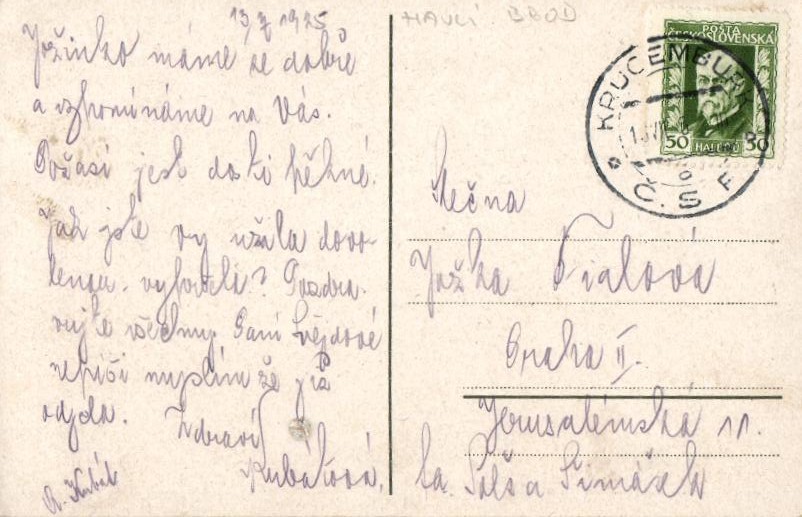 13/7 1925
Jožinko máme se dobře
a vzpomínáme na Vás.
Počasí jest dosti pěkné.
Jak jste vy užila dovo-
lenou. výborně? Pozdra-
vujte všechny. Paní Švejdové
nepíši myslím že již
odjela. Zdraví
Kubátová.
R. Kubát
HAVLÍ. BROD
POŠTA
ČESKOSLOVENSKÁ
50 HALÉŘŮ 50
KRUCEMBURK
Č.S.R
Slečna
Jožka Fialová
Praha II.
Jerusalémská 11.
fa. Šolš a Šimáček